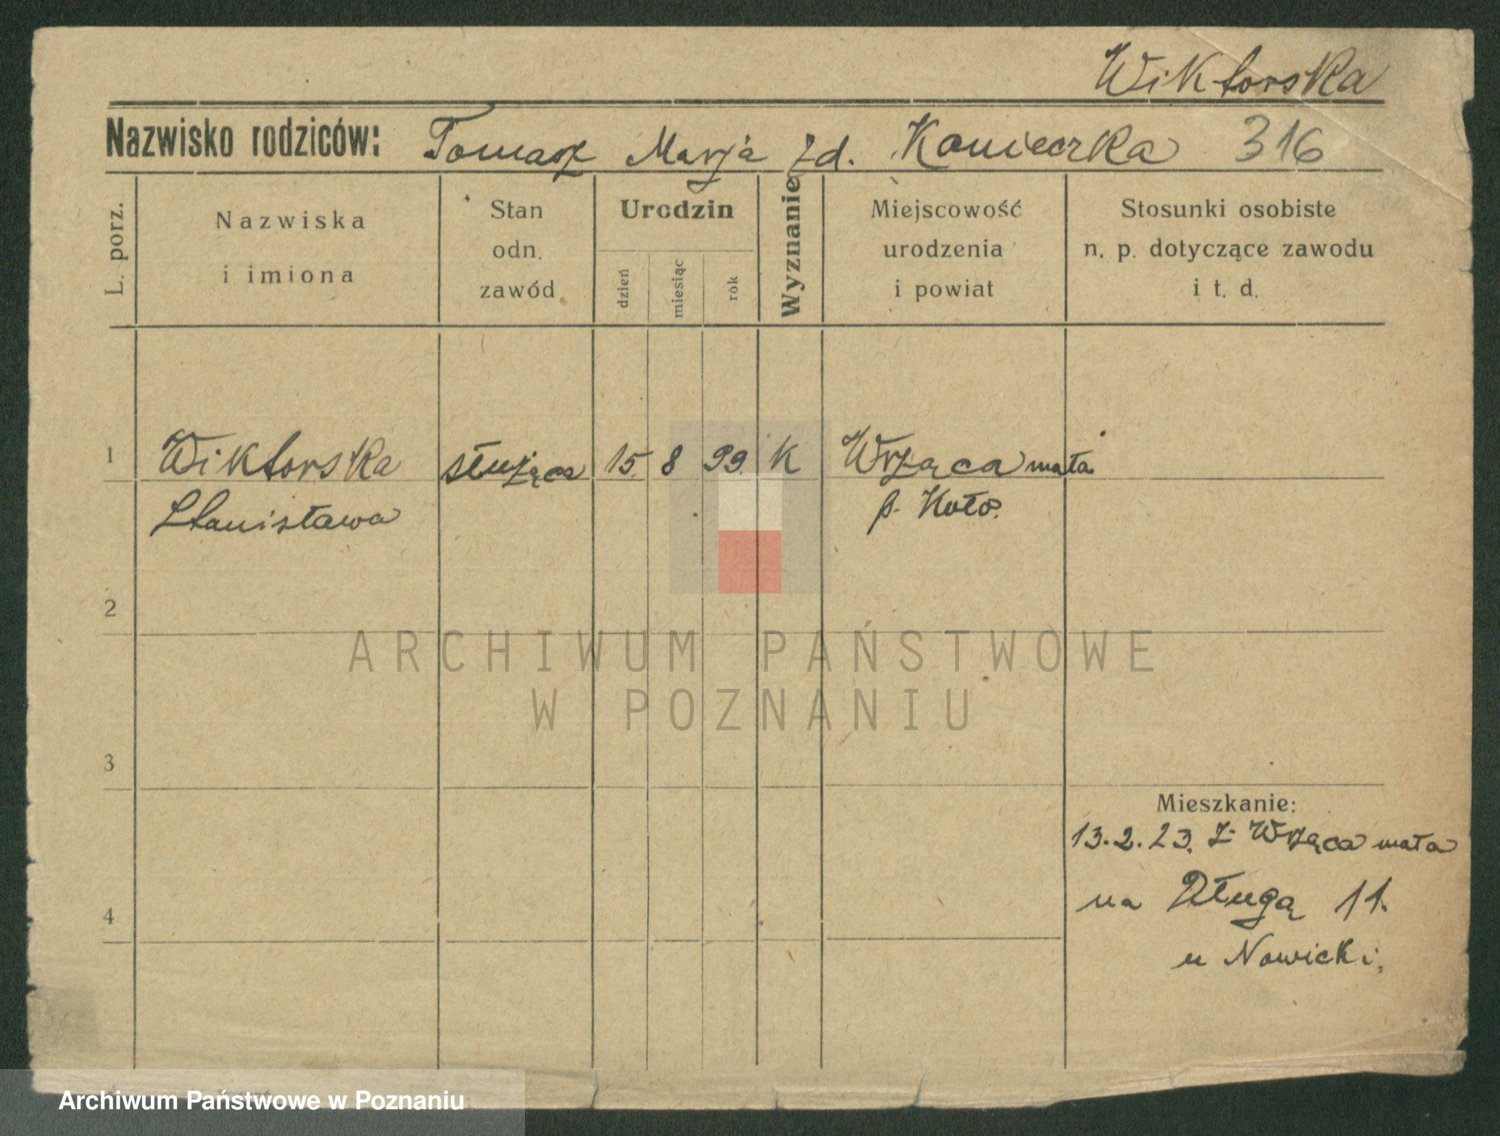 Wiktorska
Nazwisko rodziców: Tomasz Marja zd. Konieczka 316
L. porz.
Nazwiska
i imiona
Stan
odn.
zawód
Urodzin
dzień
miesiąc
rok
Wyznanie
Miejscowość
urodzenia
i powiat
Stosunki osobiste
n. p. dotyczące zawodu
i t. d.
1 Wiktorska służąca 15. 8 99. K Wrząca mała
Stanisława p. Koło.
2
ARCHIWUM PAŃSTWOWE
W POZNANIU
3
Mieszkanie:
13.2.23. z Wrząca mała
4 na Długą 11.
u Nowicki.
Archiwum Państwowe w Poznaniu